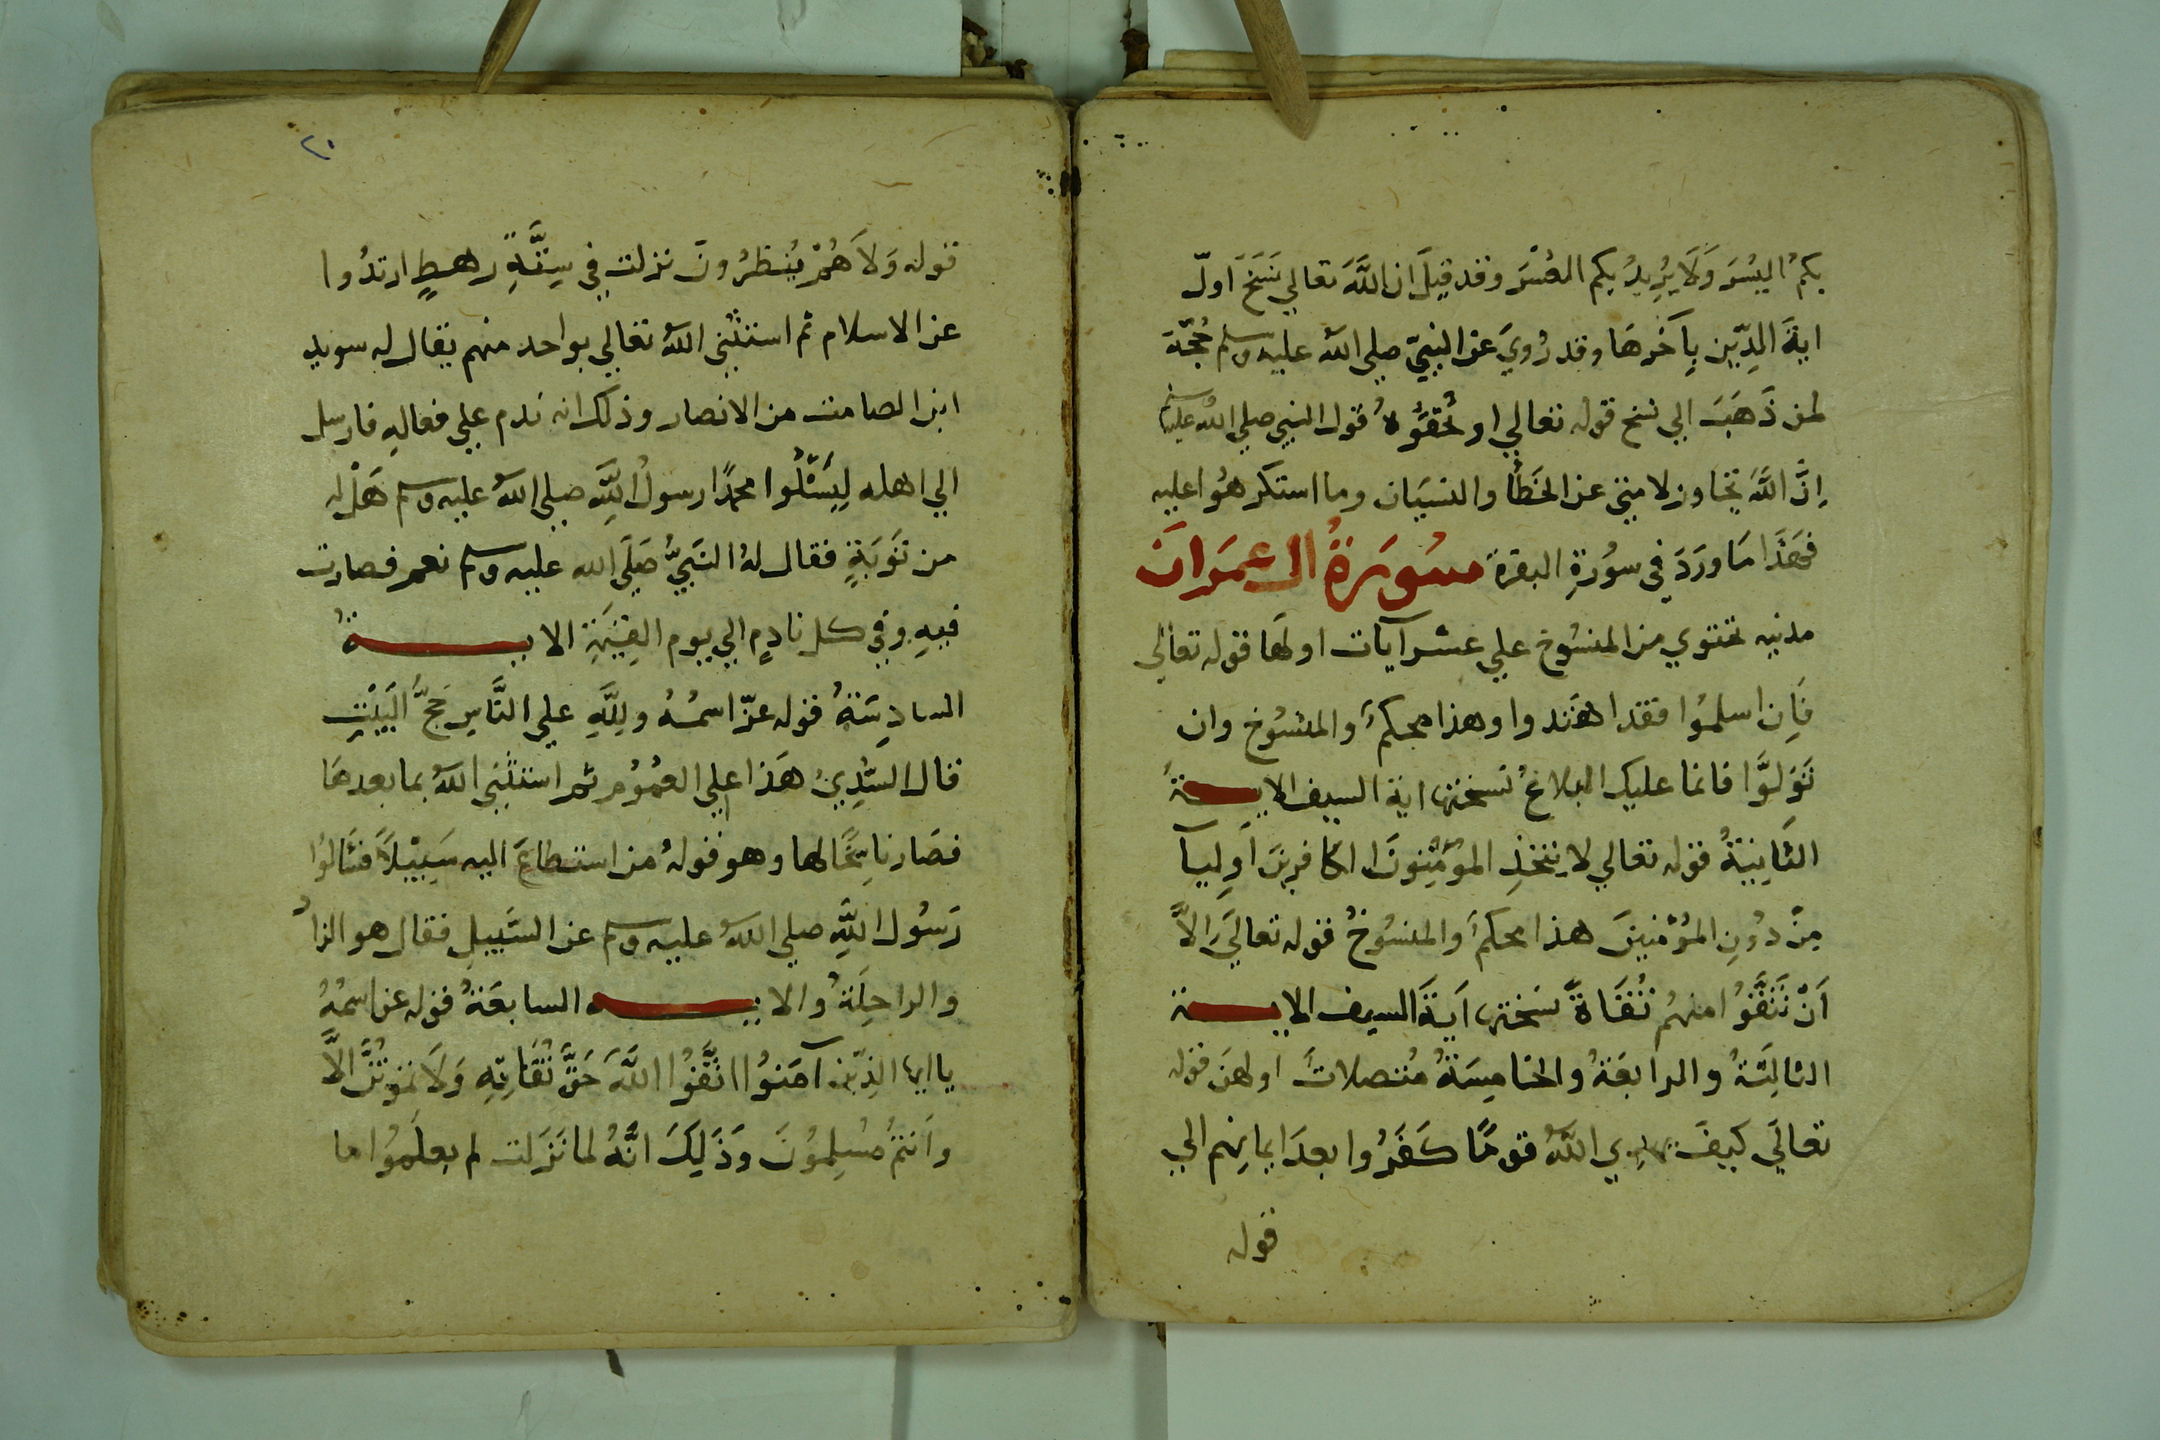 بكمُ اليُسْرَ وَلَا يُرِيدُ بكم العُسْرَ وقد قيلَ ان اللَّهَ تعالي نَسَخَ اولّ
ايةَ الدِّين بِآخرهَا وقد رُويَ عن النبيّ صلي الله عليه وسلم حُجّة
لمن ذَهَبَ الي نسخ قوله تعالي او تُخفُوُهُ قول النبي صلي الله عليه وسلم
اِنَّ اللَّهَ تجاوز لامتي عن الخَطَأُ والنسيَان وما استكرهُوا عليه
فهَذَا مَا ورَدَ في سُورَةِ البقرة سُورَةُ ال عمرَانَ
مدنيه تحتوي من المنسُوخ علي عشر آيات اولها قوله تعالي
فَاِن اسلمُوا فقد اهتَدوا وهذا محكمٌ والمنسُوخ وان
تَوَلوَّا فانما عليك البلاغُ نسختها اية السيف الايـــة
الثَانِيَةُ قوله تعالي لا يتخذِ المؤمِنُونَ الكافرينَ اَوليآ
مِنْ دُونِ المُؤمنينَ هذا محكمٌ والمنسُوخُ قوله تعالَي اِلاَّ
اَنْ تَتَّقُوا منهُم تُقَاةً نسَختها اَيةَ السيف الايـــة
الثالِثَةُ والرابعَةُ والخامِسَةُ مُتصلاتٌ اولهنَ قوله
تعالَي كيفَ يهدِي اللَّهُ قومًا كَفَرُوا بعدَ ايمانِهم الي
قوله
٢٠
قوله وَلاَ هُمْ يُنظرُونَ نزلت في سِتَّةِ رهطٍ ارتدُوا
عن الاسلام ثم استثنَي اللهُ تعالي بواحد منهم يقال له سويد
ابن الصامت من الانصار وذلك انه ندم علي فعالِهِ فارسل
الي اهله لِيَسْئَلُوا محمدًا رسولُ اللَّهِ صلي اللهُ عليه وسلم هَلْ له
من تَوبَةٍ فقال لهُ النَبيُّ صَلَي الله عليه وسلم نعم فصارت
فيهِ وفي كل نادِمٍ الي يوم القِيَمَةِ الايـــةُ
السادِسَةُ قوله عزّ اسمُهُ وللَّهِ علي النَّاسِ حَجُّ البَيْتِ
قال السُّدِيُ هَذا علي العمُوُم ثم استثنَي اللهُ بما بعدهَا
فصَار ناسِخًا لها وهو قولهُ من استطاعَ اليه سَبِيْلاً فسَالُوا
رَسُول اللَّهِ صلي اللهُ عليه وسلم عن السَّبيل فقال هو الزادُ
والراحِلَةُ والايـــه السابعَةُ قوله عز اسمُهُ
يا ايها الذِيّن آمَنُوا اتَّقُوا اللَّهَ حَقَّ تُقَاتِهِ وَلَا تموتُنَّ اِلاَّ
واَنتمُ مُسْلِمُونَ وَذَلِكَ اَنَّهُ لما نَزَلت لم يعلَمُوا ما